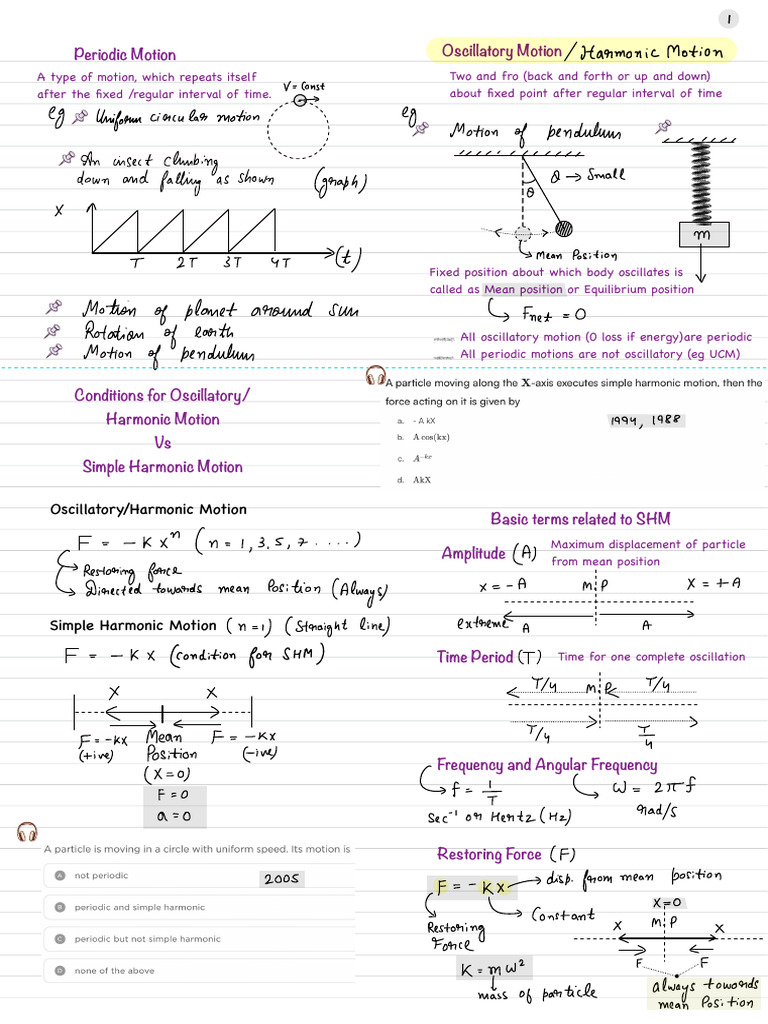 1
Periodic Motion
A type of motion, which repeats itself
after the fixed /regular interval of time.
V = Const
eg Uniform circular motion
An insect climbing
down and falling as shown (graph)
X
T 2T 3T 4T (t)
Motion of planet around sun
Rotation of earth
Motion of pendulum
Oscillatory Motion / Harmonic Motion
Two and fro (back and forth or up and down)
about fixed point after regular interval of time
eg
Motion of pendulum
θ → Small
θ
m
Mean Position
Fixed position about which body oscillates is
called as Mean position or Equilibrium position
Fnet = 0
All oscillatory motion (0 loss if energy)are periodic
All periodic motions are not oscillatory (eg UCM)
Conditions for Oscillatory/
Harmonic Motion
Vs
Simple Harmonic Motion
A particle moving along the X-axis executes simple harmonic motion, then the
force acting on it is given by
a. - A kX
1994, 1988
b. A cos(kx)
c. A⁻ᵏˣ
d. AkX
Oscillatory/Harmonic Motion
F = - K Xⁿ ( n = 1, 3, 5, 7 ....)
Restoring force
Directed towards mean Position (Always)
Simple Harmonic Motion ( n=1) (Straight line)
F = - K X (condition for SHM)
X X
F = -KX Mean F = -KX
(+ive) Position (-ive)
(X=0)
F=0
a=0
A particle is moving in a circle with uniform speed. Its motion is
A not periodic
2005
B periodic and simple harmonic
C periodic but not simple harmonic
D none of the above
Basic terms related to SHM
Amplitude (A) Maximum displacement of particle
from mean position
X = - A M P X = + A
extreme A A
Time Period (T) Time for one complete oscillation
T/4 M P T/4
T/4 T/4
Frequency and Angular Frequency
f = 1/T ω = 2πf
Sec⁻¹ or Hertz (Hz) rad/s
Restoring Force (F)
F = - KX disp. from mean position
Constant
Restoring
Force
K = mω²
mass of particle
X=0
X M P X
F F
always towards
mean Position